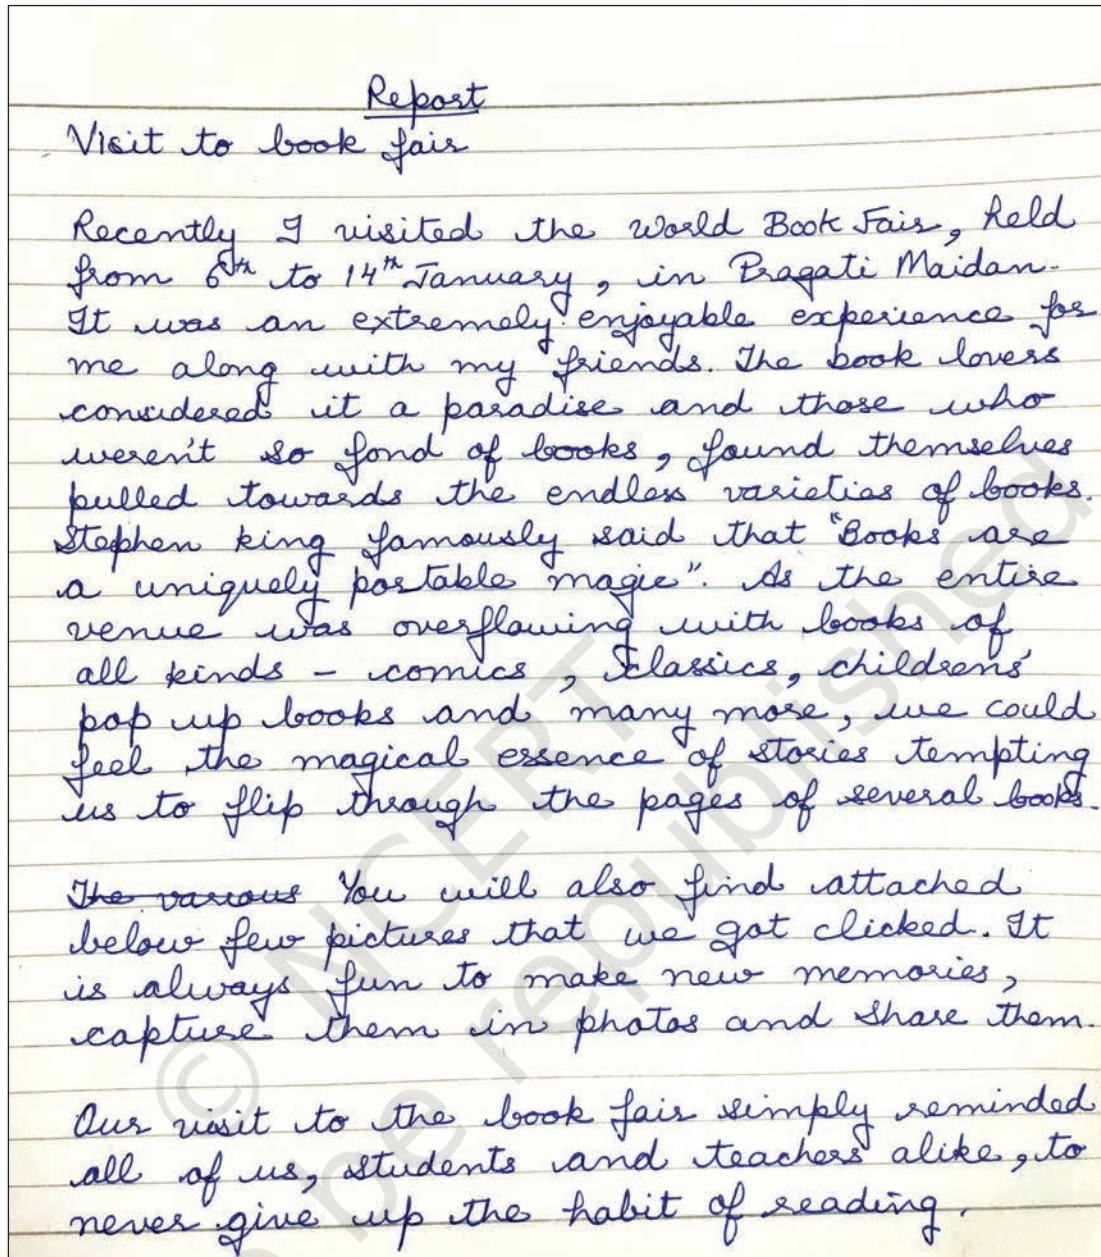 Report
Visit to book fair
Recently I visited the World Book Fair, held
from 6th to 14th January, in Pragati Maidan.
It was an extremely enjoyable experience for
me along with my friends. The book lovers
considered it a paradise and those who
weren't so fond of books, found themselves
pulled towards the endless varieties of books.
Stephen king famously said that "Books are
a uniquely portable magic". As the entire
venue was overflowing with books of
all kinds - comics, classics, childrens'
pop up books and many more, we could
feel the magical essence of stories tempting
us to flip through the pages of several books.
The various You will also find attached
below few pictures that we got clicked. It
is always fun to make new memories,
capture them in photos and share them.
Our visit to the book fair simply reminded
all of us, students and teachers alike, to
never give up the habit of reading.
© NCERT
be republished